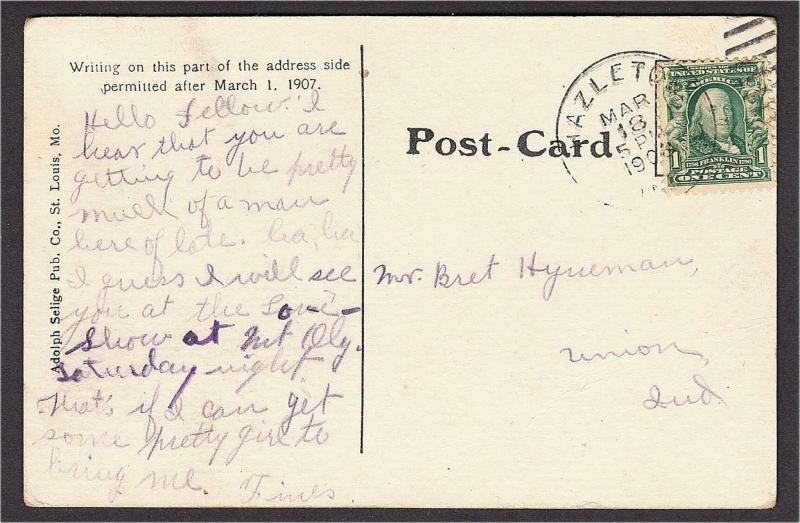 Writing on this part of the address side
permitted after March 1, 1907.
Hello Fellow! I
hear that you are
getting to be pretty
much of a man
here of late. ha, ha
I guess I will see
you at the
Show at Mt Oly.
Saturday night
that's if I can get
some pretty girl to
bring me. Fines.
Adolph Selige Pub. Co., St. Louis, Mo.
Post-Card
HAZLETO
MAR
18
5 PM
190
SERIES 1902
UNITED STATES OF
AMERICA
1706 FRANKLIN 1790
1 POSTAGE 1
ONE CENT
Mr. Bret Hyneman,
Union,
Ind.